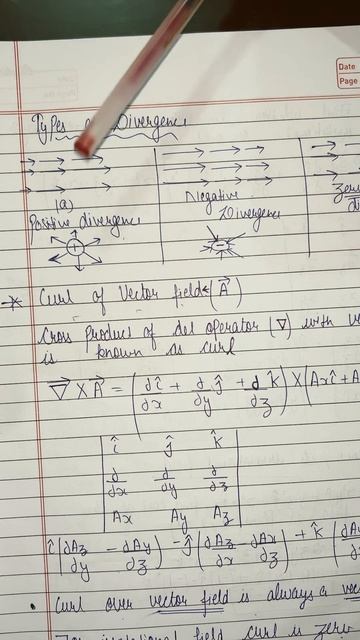 Date
Page
Types of Divergence
(a)
Positive divergence
Negative
Divergence
Zero
di
+
-
* Curl of Vector field (A⃗)
Cross Product of del operator (∇) with v
is known as curl
∇⃗ × A⃗ = (d/dx î + d/dy ĵ + d/dz k̂) × (Ax î + A
î ĵ k̂
d/dx d/dy d/dz
Ax Ay Az
î (dAz/dy - dAy/dz) - ĵ (dAz/dx - dAx/dz) + k̂ (dAy
• Curl over vector field is always a vec
For irrotational field curl is zero